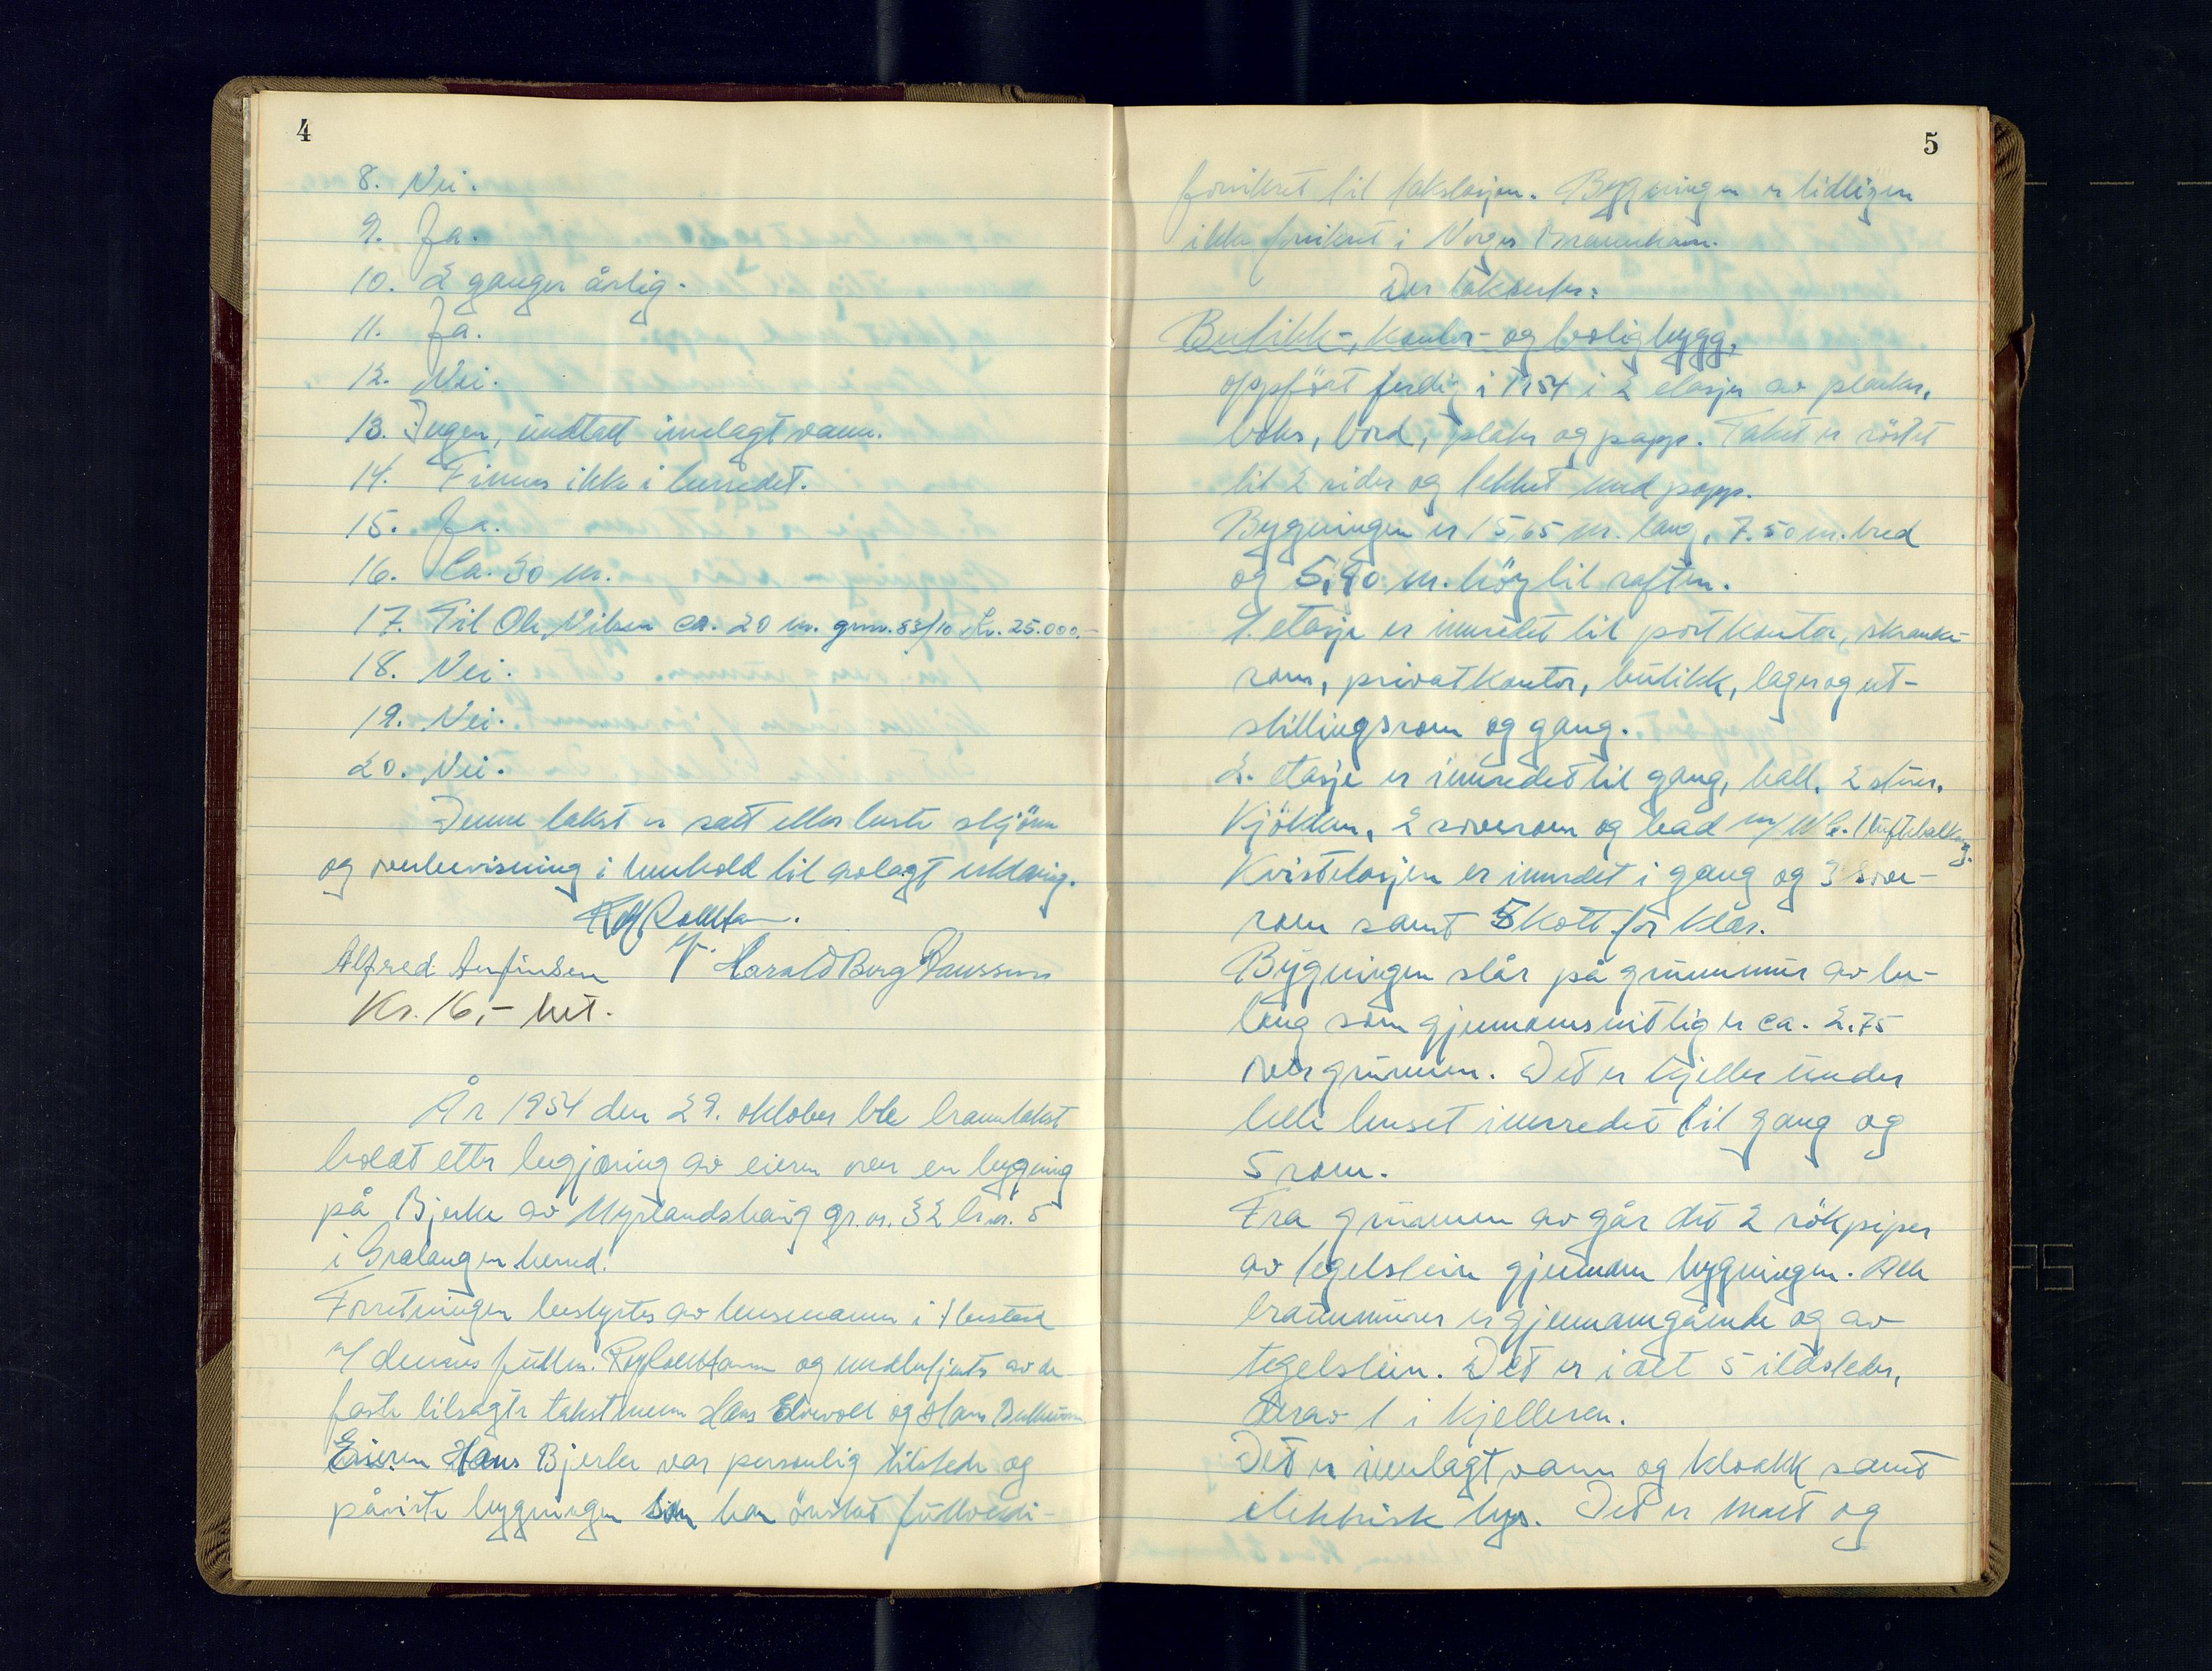 4
8. Nei.
9. Ja.
10. 2 ganger årlig.
11. Ja.
12. Nei.
13. Ingen, undtatt innlagt vann.
14. Finnes ikke i herredet.
15. Ja.
16. Ca. 30 m.
17. Til Ole Nilsen ca. 20 m. gnr. 83/10 Kr. 25.000.-
18. Nei.
19. Nei.
20. Nei.
Denne takst er satt etter beste skjönn
og overbevisning i henhold til avlagt erklæring.
Alfred Arnfindsen Harald Berg Paulssen
Kr. 16,- bet.
År 1954 den 29. oktober ble branntakst
holdt etter begjæring av eieren over en bygning
på Bjerke av Myrlandshaug gr.nr. 32 br.nr. 5
i Gratangen herred.
Forretningen bestyrtes av lensmannen i Ibestad
v/ dennes fullm. og medbetjents av de
faste tilsagte takstmenn Hans Elvevoll og Hans
Eieren Hans Bjerke var personlig tilstede og
påviste bygningen som han önsket fullverdi-
5
forsikret til takstasjon. Bygningen er tidligere
ikke forsikret i Norges Brannkasse.
Der takseres:
Butikk-, kontor- og boligbygg,
oppfört ferdig i 1954 i 2 etasjer av planker,
boks, bord, plater og papp. Taket er röstet
til 2 sider og tekket med papp.
Bygningen er 15,65 m. lang, 7.50 m. bred
og 5,90 m. höy til raften.
1. etasje er innredet til postkontor, skranke-
rom, privatkontor, butikk, lager og ut-
stillingsrom og gang.
2. etasje er innredet til gang, hall, 2 stuer,
kjökken, 2 soverom og bad m/ W.C. 1 luftebalkong.
Kvistetasjen er innredet i gang og 3 sove-
rom samt 5 kott for klær.
Bygningen står på grunnmur av be-
tong som gjennomsnitlig er ca. 2.75
over grunnen. Det er kjeller under
hele huset innredet til gang og
5 rom.
Fra grunnen av går det 2 rökpiper
av tegelstein gjennom bygningen. Alle
brannmurer er gjennomgående og av
tegelstein. Det er i alt 5 ildsteder,
derav 1 i kjelleren.
Det er innlagt vann og kloakk samt
elektrisk lys. Det er malt og